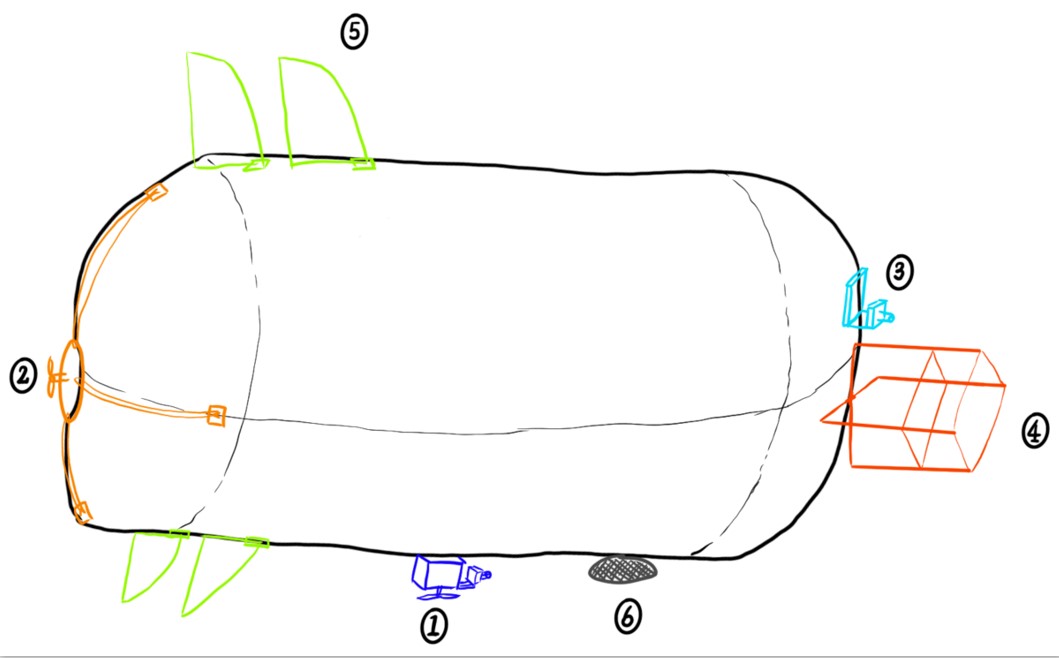 ⑤
③
②
④
①
⑥